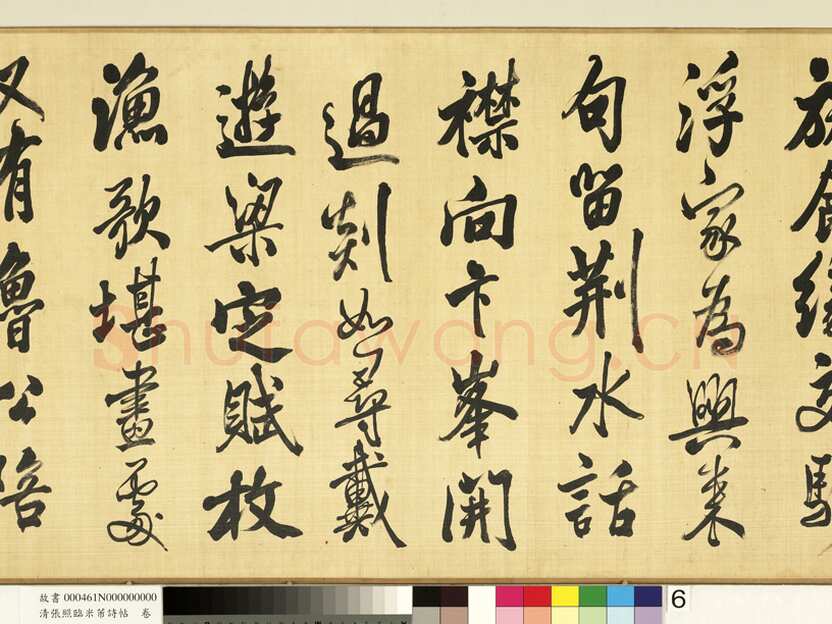 旅食緣交駐
浮家為興來
句留荊水話
襟向卞峯開
過剡如尋戴
遊梁定賦枚
漁歌堪畫處
又有魯公陪
Shufawang.cn
故書 000461N000000000
清張照臨米芾詩帖 卷
6